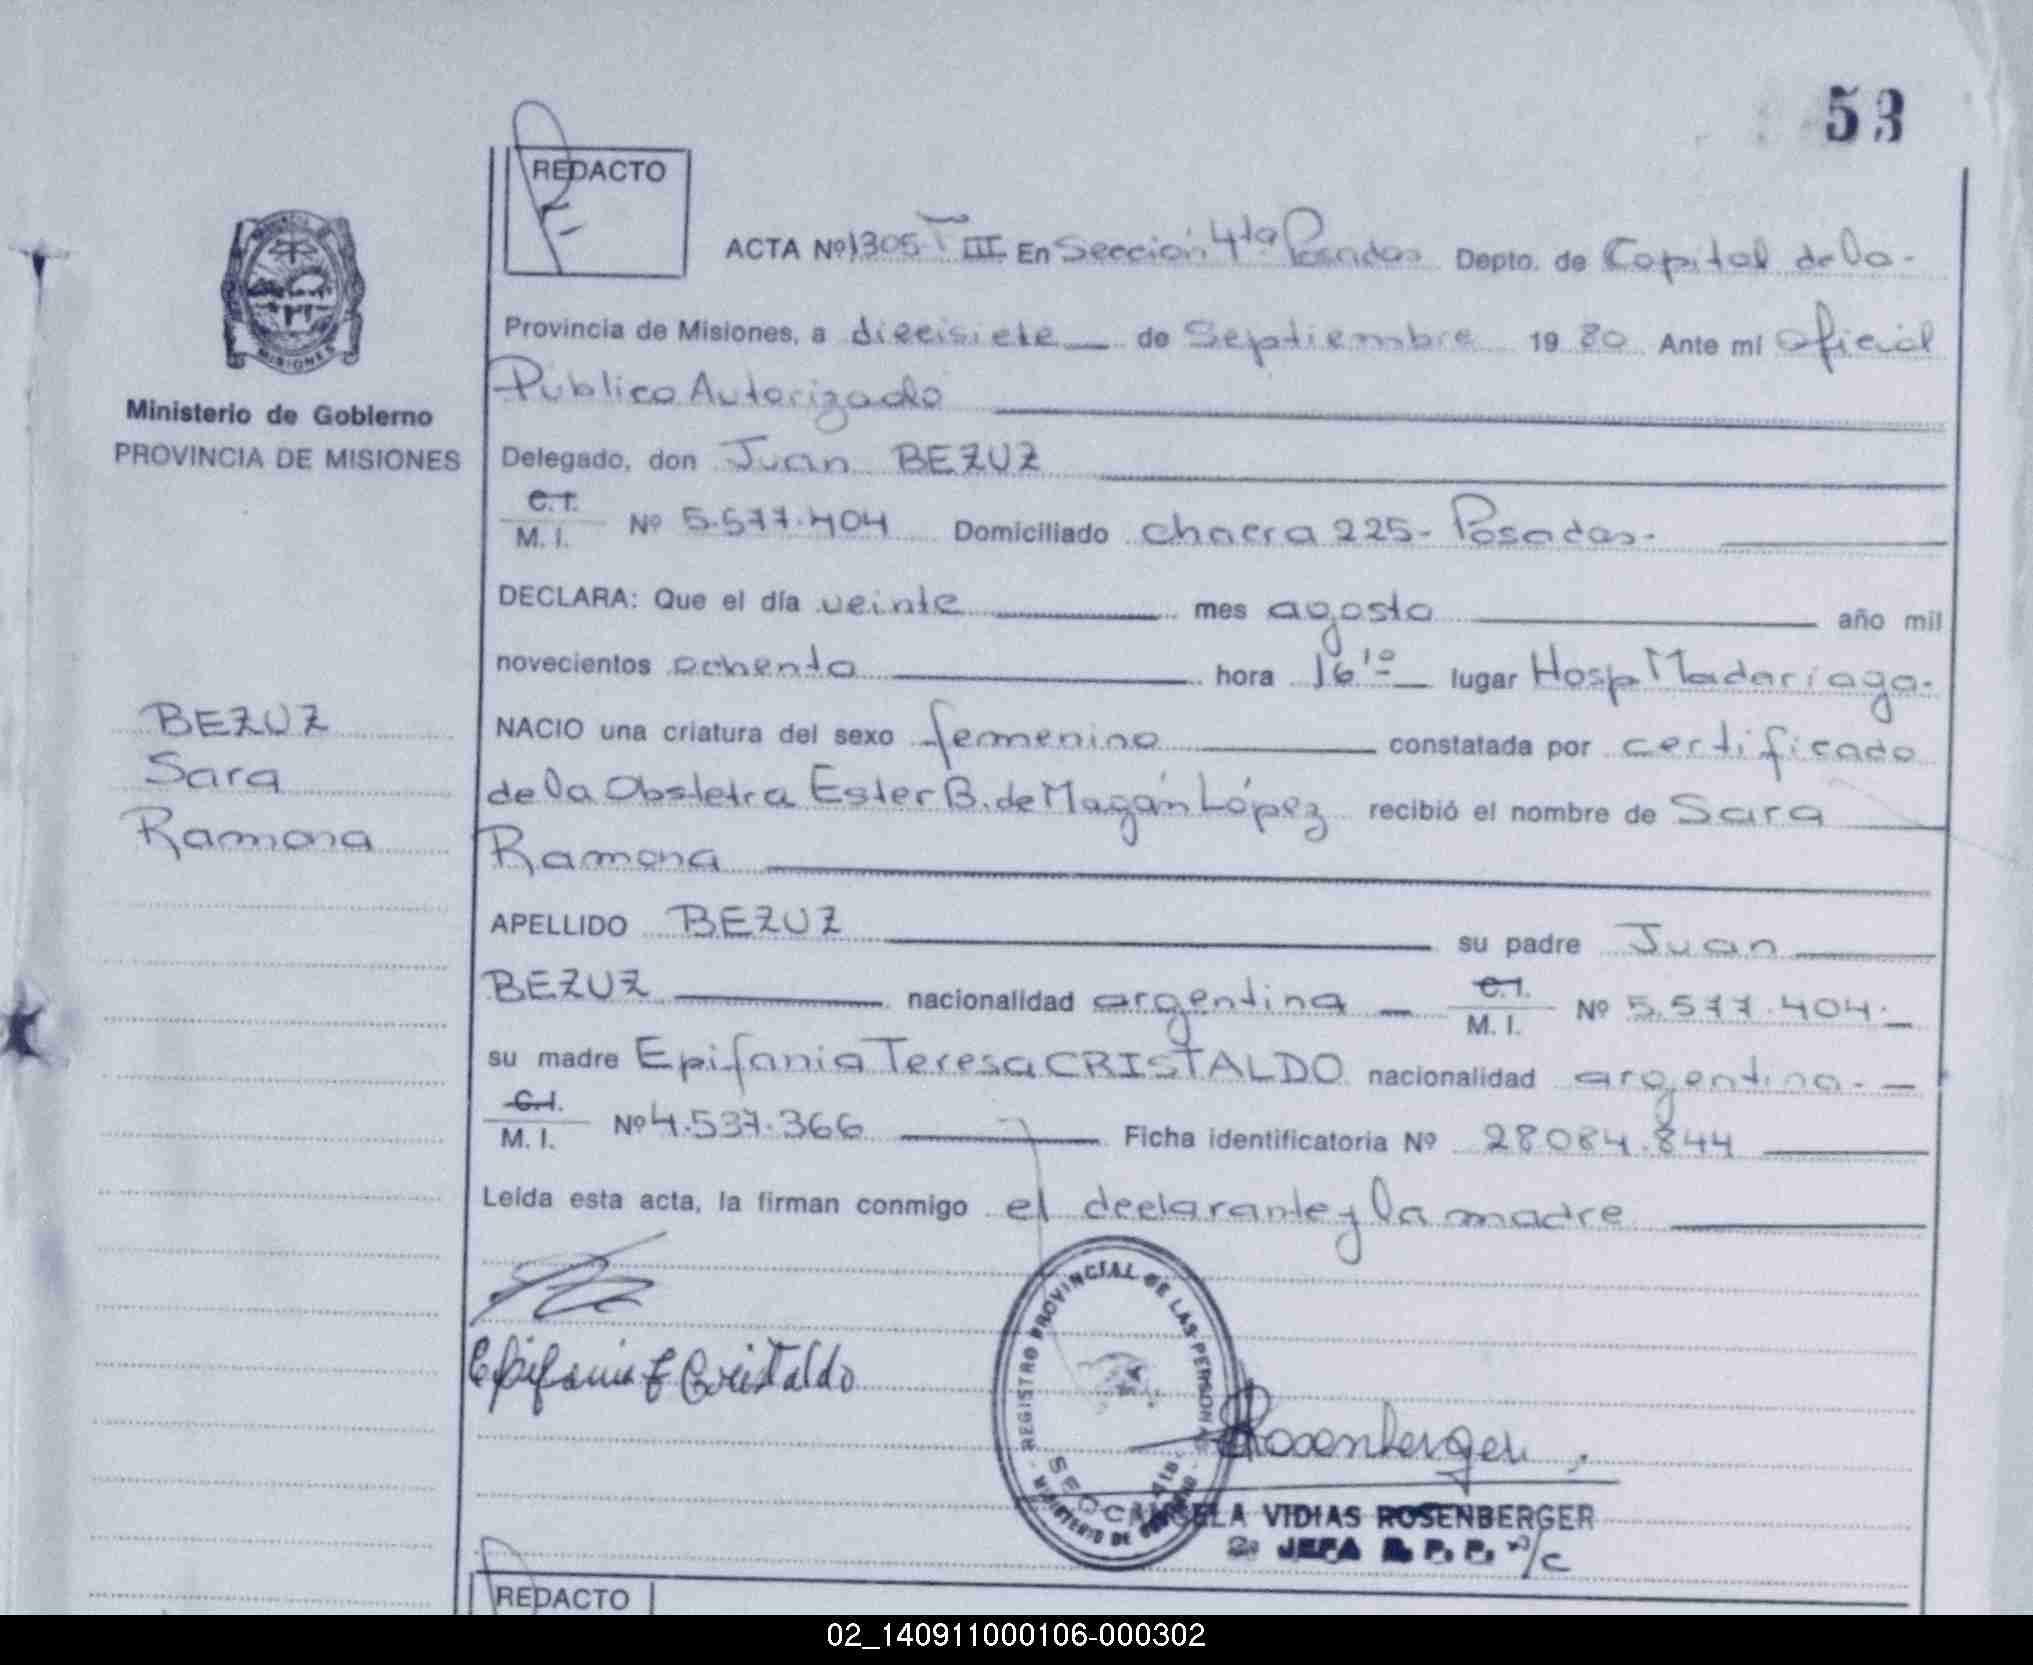 53
REDACTO
ACTA Nº 1305 T III En Sección 4ta Posadas Depto. de Capital de la.
Provincia de Misiones, a diecisiete de Septiembre 19 80 Ante mi Oficial
Publico Autorizado
Ministerio de Gobierno
PROVINCIA DE MISIONES
Delegado, don Juan BEZUZ
C.I.
M. I. Nº 5.577.404 Domiciliado chacra 225- Posadas.
DECLARA: Que el día veinte mes agosto año mil
novecientos ochenta hora 16 10 lugar Hosp Madariaga.
BEZUZ
Sara
Ramona
NACIO una criatura del sexo femenino constatada por certificado
de la Obstetra Ester B. de Magán López recibió el nombre de Sara
Ramona
APELLIDO BEZUZ su padre Juan
BEZUZ nacionalidad argentina C.I.
M. I. Nº 5.577.404.
su madre Epifania Teresa CRISTALDO nacionalidad argentina.
C.I.
M. I. Nº 4.537.366 Ficha identificatoria Nº 28.084.844
Leída esta acta, la firman conmigo el declarante y la madre
Epifania T Cristaldo
REGISTRO PROVINCIAL DE LAS PERSONAS
MINISTERIO DE GOBIERNO
MISIONES
Rosenberger
VIDIAS ROSENBERGER
2º JEFA R. P. P. /c
REDACTO
02_140911000106-000302